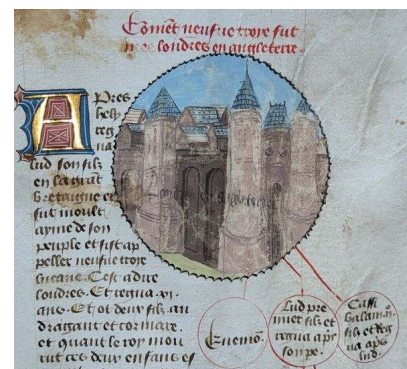 Com̃et neufue troye fut
nõe londres en angleterre.
Apres
hely
reg
na
lud son filz
en la grãt
bretaigne et
fut moult
ayme de son
peuple et fist ap
peller neufue troie
C'est a dire
londres. Et regna .xi.
ans. Et ot deux filz. an
dragant et cormare.
et quant le roy mou
rut ces deux enfans es
Enemõ.
Lud pre
mier filz et
regna aps
son pe.
Cassi
balam9.
filz et reg
na aps
lud.